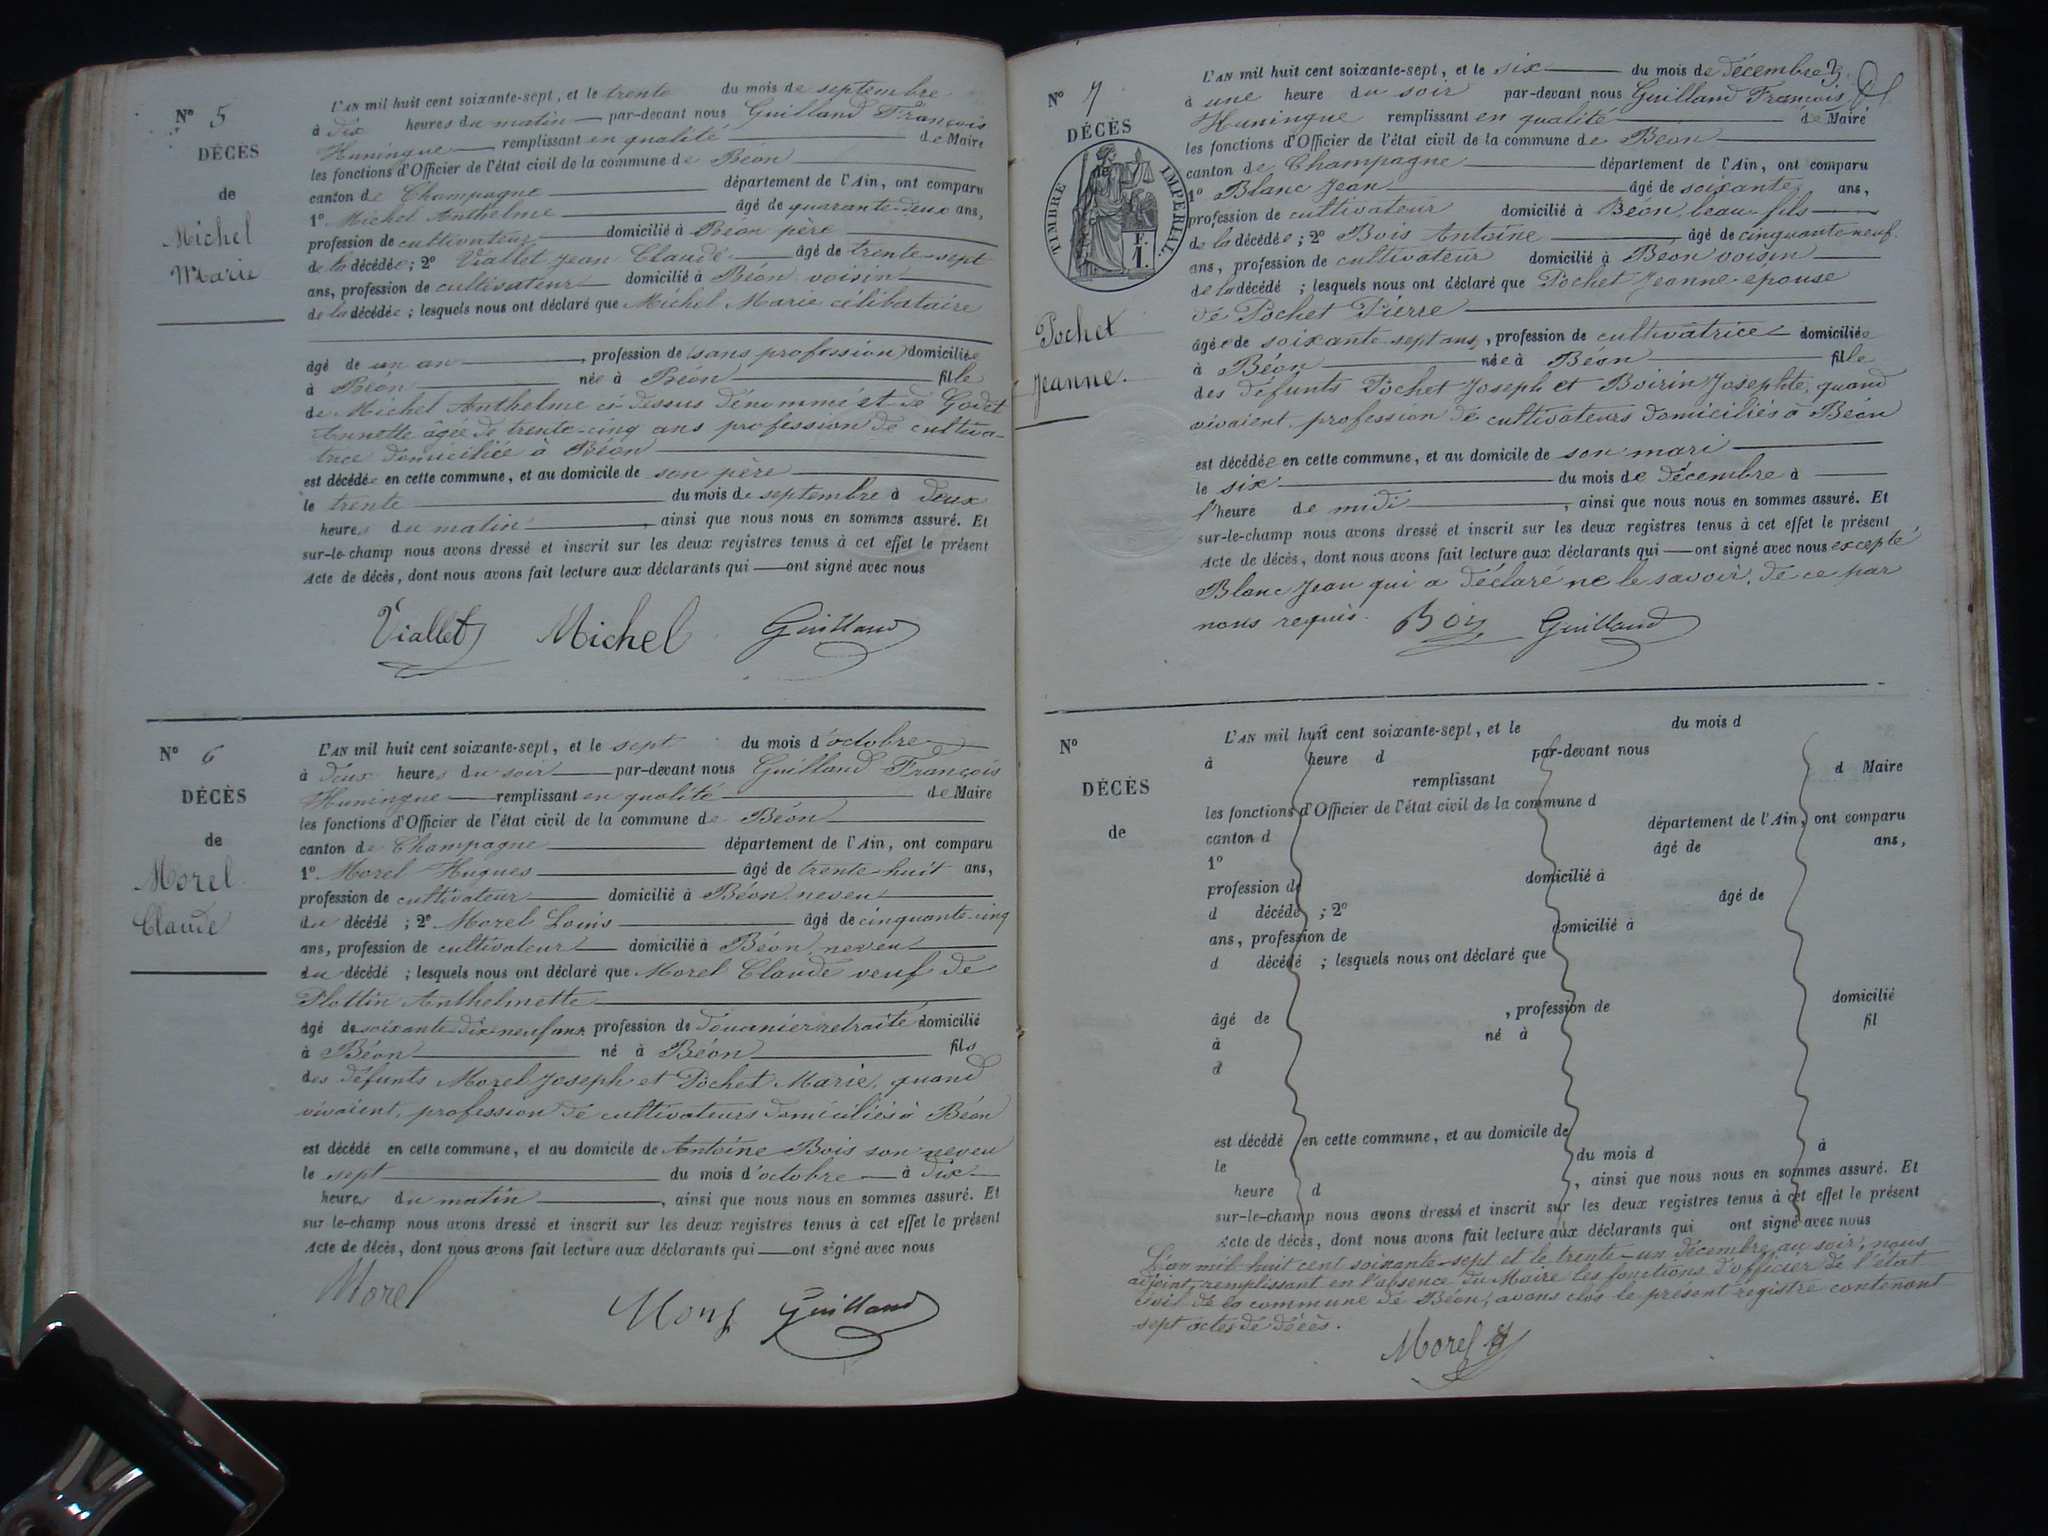 N° 5
DÉCÈS
de
Michel
Marie
L'AN mil huit cent soixante-sept, et le trente du mois de septembre
à dix heures du matin par-devant nous Guilland François
Huningue remplissant en qualité de Maire
les fonctions d'Officier de l'état civil de la commune de Béon
canton de Champagne département de l'Ain, ont comparu
1° Michel Anthelme âgé de quarante-deux ans,
profession de cultivateur domicilié à Béon père
de la décédée ; 2° Viallet Jean Claude âgé de trente-sept
ans, profession de cultivateur domicilié à Béon voisin
de la décédée ; lesquels nous ont déclaré que Michel Marie célibataire
âgé de un an, profession de (sans profession) domiciliée
à Béon née à Béon fille
de Michel Anthelme ci-dessus dénommé et de Godet
Annette âgée de trente-cinq ans profession de cultiva-
trice domiciliée à Béon
est décédée en cette commune, et au domicile de son père
le trente du mois de septembre à deux
heures du matin, ainsi que nous nous en sommes assuré. Et
sur-le-champ nous avons dressé et inscrit sur les deux registres tenus à cet effet le présent
Acte de décès, dont nous avons fait lecture aux déclarants qui ont signé avec nous
Viallet Michel Guilland
N° 6
DÉCÈS
de
Morel
Claude
L'AN mil huit cent soixante-sept, et le sept du mois d'octobre
à deux heures du soir par-devant nous Guilland François
Huningue remplissant en qualité de Maire
les fonctions d'Officier de l'état civil de la commune de Béon
canton de Champagne département de l'Ain, ont comparu
1° Morel Hugues âgé de trente huit ans,
profession de cultivateur domicilié à Béon neveu
du décédé ; 2° Morel Louis âgé de cinquante-cinq
ans, profession de cultivateur domicilié à Béon neveu
du décédé ; lesquels nous ont déclaré que Morel Claude veuf de
Plottin Anthelmette
âgé de soixante-dix-neuf ans profession de douanier retraité domicilié
à Béon né à Béon fils
des défunts Morel Joseph et Pochet Marie, quand
vivaient, profession de cultivateurs domiciliés à Béon
est décédé en cette commune, et au domicile de Antoine Bois son neveu
le sept du mois d'octobre à dix
heures du matin, ainsi que nous nous en sommes assuré. Et
sur le-champ nous avons dressé et inscrit sur les deux registres tenus à cet effet le présent
Acte de décès, dont nous avons fait lecture aux déclarants qui ont signé avec nous
Morel Guilland
N° 7
DÉCÈS
TIMBRE IMPÉRIAL
F.
1.
Pochet
Jeanne.
L'AN mil huit cent soixante-sept, et le six du mois de décembre 3.
à une heure du soir par-devant nous Guilland François
Huningue remplissant en qualité de Maire
les fonctions d'Officier de l'état civil de la commune de Béon
canton de Champagne département de l'Ain, ont comparu
1° Blanc Jean âgé de soixante ans,
profession de cultivateur domicilié à Béon, beau-fils
de la décédée ; 2° Bois Antoine âgé de cinquante neuf
ans, profession de cultivateur domicilié à Béon voisin
de la décédé ; lesquels nous ont déclaré que Pochet Jeanne épouse
de Pochet Pierre
âgée de soixante-sept ans, profession de cultivatrice domiciliée
à Béon née à Béon fille
des défunts Pochet Joseph et Boirin Josephte, quand
vivaient, profession de cultivateurs domiciliés à Béon
est décédée en cette commune, et au domicile de son mari
le six du mois de décembre à
l'heure de midi, ainsi que nous nous en sommes assuré. Et
sur-le-champ nous avons dressé et inscrit sur les deux registres tenus à cet effet le présent
Acte de décès, dont nous avons fait lecture aux déclarants qui ont signé avec nous excepté
Blanc Jean qui a déclaré ne le savoir, de ce par
nous requis. Bois Guilland
N°
DÉCÈS
de
L'AN mil huit cent soixante-sept, et le du mois d
à heure d par-devant nous
remplissant d Maire
les fonctions d'Officier de l'état civil de la commune d
canton d département de l'Ain, ont comparu
1° âgé de ans,
profession de domicilié à
d décédé ; 2° âgé de
ans, profession de domicilié à
d décédé ; lesquels nous ont déclaré que
âgé de , profession de domicilié
à né à fil
d
est décédé en cette commune, et au domicile de
le du mois d à
heure d , ainsi que nous nous en sommes assuré. Et
sur-le-champ nous avons dressé et inscrit sur les deux registres tenus à cet effet le présent
Acte de décès, dont nous avons fait lecture aux déclarants qui ont signé avec nous
L'an mil huit cent soixante-sept et le trente-un décembre au soir, nous
adjoint, remplissant en l'absence du Maire les fonctions d'officier de l'état
civil de la commune de Béon, avons clos le présent registre contenant
sept actes de décès.
Morel